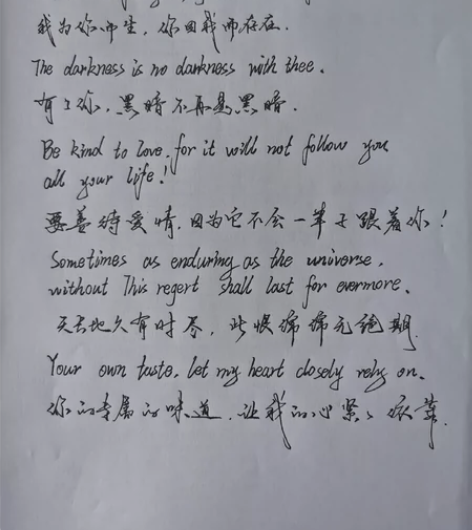 我为你而生，你因我而存在.
The darkness is no darkness with thee.
有了你，黑暗不再是黑暗.
Be kind to love, for it will not follow you
all your life!
要善待爱情，因为它不会一辈子跟着你！
Sometimes as enduring as the universe,
without This regert shall last for evermore.
天长地久有时尽，此恨绵绵无绝期.
Your own taste, let my heart closely rely on.
你的专属的味道，让我的心紧紧依靠.